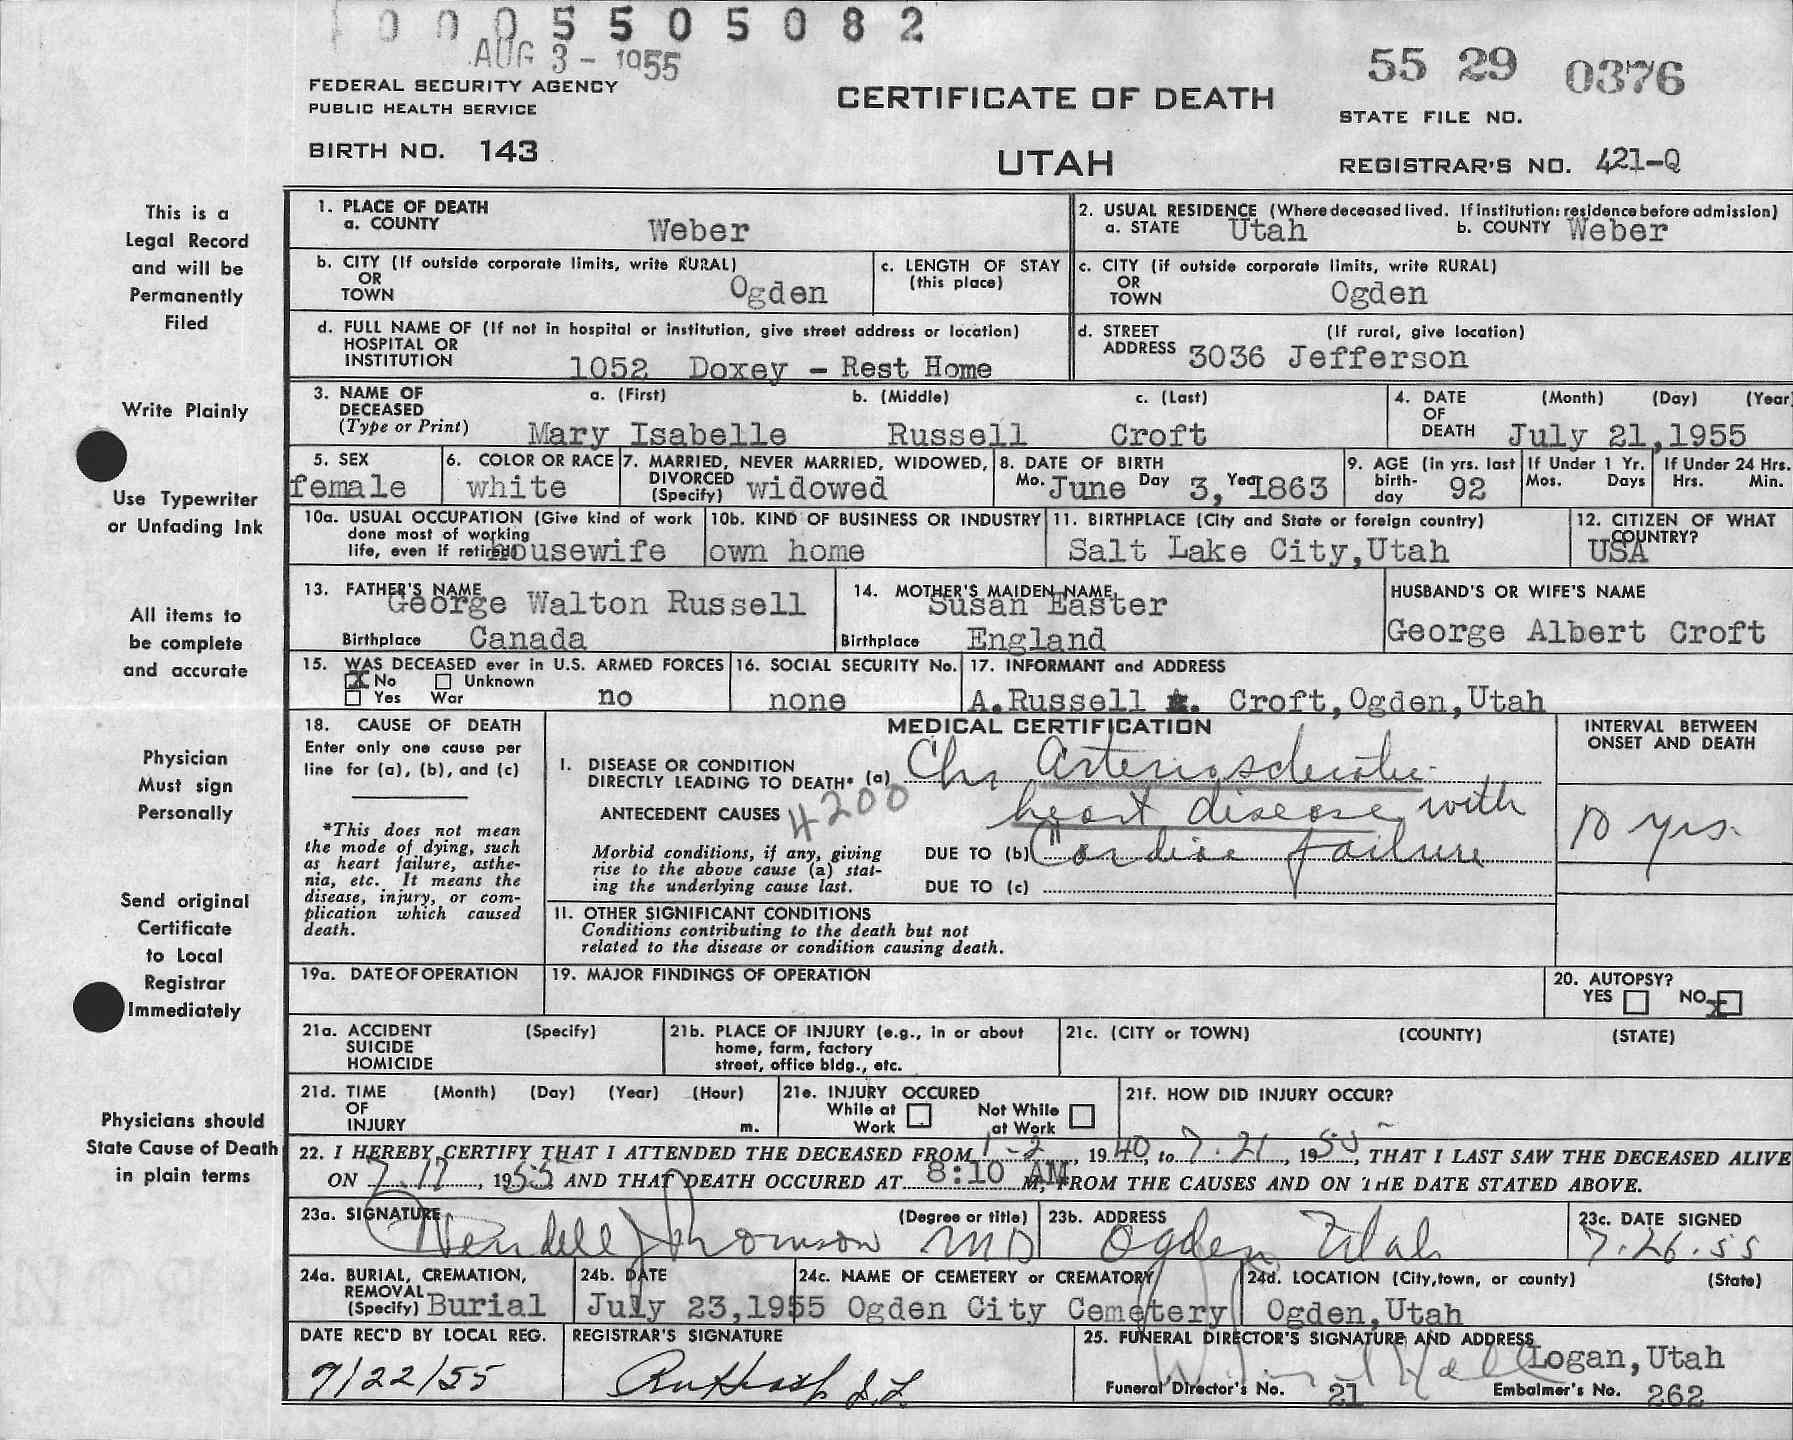 0 0 0 5 5 0 5 0 8 2
AUG 3 - 1955
55 29 0376
FEDERAL SECURITY AGENCY
PUBLIC HEALTH SERVICE
CERTIFICATE OF DEATH
STATE FILE NO.
BIRTH NO. 143
UTAH
REGISTRAR'S NO. 421-Q
This is a
Legal Record
and will be
Permanently
Filed
Write Plainly
Use Typewriter
or Unfading Ink
All items to
be complete
and accurate
Physician
Must sign
Personally
Send original
Certificate
to Local
Registrar
Immediately
Physicians should
State Cause of Death
in plain terms
1. PLACE OF DEATH
a. COUNTY Weber
2. USUAL RESIDENCE (Where deceased lived. If institution: residence before admission)
a. STATE Utah b. COUNTY Weber
b. CITY (If outside corporate limits, write RURAL)
OR
TOWN Ogden
c. LENGTH OF STAY
(this place)
c. CITY (if outside corporate limits, write RURAL)
OR
TOWN Ogden
d. FULL NAME OF (If not in hospital or institution, give street address or location)
HOSPITAL OR
INSTITUTION 1052 Doxey - Rest Home
d. STREET (If rural, give location)
ADDRESS 3036 Jefferson
3. NAME OF a. (First) b. (Middle) c. (Last)
DECEASED
(Type or Print) Mary Isabelle Russell Croft
4. DATE (Month) (Day) (Year)
OF
DEATH July 21,1955
5. SEX
female
6. COLOR OR RACE
white
7. MARRIED, NEVER MARRIED, WIDOWED,
DIVORCED
(Specify) widowed
8. DATE OF BIRTH
Mo. June Day 3, Year 1863
9. AGE (in yrs. last
birth-
day 92
If Under 1 Yr.
Mos. Days
If Under 24 Hrs.
Hrs. Min.
10a. USUAL OCCUPATION (Give kind of work
done most of working
life, even if retired) housewife
10b. KIND OF BUSINESS OR INDUSTRY
own home
11. BIRTHPLACE (City and State or foreign country)
Salt Lake City,Utah
12. CITIZEN OF WHAT
COUNTRY?
USA
13. FATHER'S NAME
George Walton Russell
Birthplace Canada
14. MOTHER'S MAIDEN NAME
Susan Easter
Birthplace England
HUSBAND'S OR WIFE'S NAME
George Albert Croft
15. WAS DECEASED ever in U.S. ARMED FORCES
X No Unknown
Yes War no
16. SOCIAL SECURITY No.
none
17. INFORMANT and ADDRESS
A.Russell Croft,Ogden,Utah
18. CAUSE OF DEATH
Enter only one cause per
line for (a), (b), and (c)
*This does not mean
the mode of dying, such
as heart failure, asthe-
nia, etc. It means the
disease, injury, or com-
plication which caused
death.
MEDICAL CERTIFICATION
I. DISEASE OR CONDITION
DIRECTLY LEADING TO DEATH* (a) Chr Arteriosclerotic
ANTECEDENT CAUSES 4200 heart disease with
Morbid conditions, if any, giving
rise to the above cause (a) stat-
ing the underlying cause last.
DUE TO (b) Cardiac failure
DUE TO (c)
INTERVAL BETWEEN
ONSET AND DEATH
10 yrs.
II. OTHER SIGNIFICANT CONDITIONS
Conditions contributing to the death but not
related to the disease or condition causing death.
19a. DATE OF OPERATION
19. MAJOR FINDINGS OF OPERATION
20. AUTOPSY?
YES NO X
21a. ACCIDENT (Specify)
SUICIDE
HOMICIDE
21b. PLACE OF INJURY (e.g., in or about
home, farm, factory
street, office bldg., etc.
21c. (CITY or TOWN) (COUNTY) (STATE)
21d. TIME (Month) (Day) (Year) (Hour)
OF
INJURY m.
21e. INJURY OCCURED
While at Work Not While at Work
21f. HOW DID INJURY OCCUR?
22. I HEREBY CERTIFY THAT I ATTENDED THE DECEASED FROM 1-2, 1940, to 7.21, 1955, THAT I LAST SAW THE DECEASED ALIVE
ON 7.17, 1955, AND THAT DEATH OCCURED AT 8:10 AM M, FROM THE CAUSES AND ON THE DATE STATED ABOVE.
23a. SIGNATURE (Degree or title)
Wendell J Thomson MD
23b. ADDRESS
Ogden Utah
23c. DATE SIGNED
7.26.55
24a. BURIAL, CREMATION,
REMOVAL
(Specify) Burial
24b. DATE
July 23,1955
24c. NAME OF CEMETERY or CREMATORY
Ogden City Cemetery
24d. LOCATION (City,town, or county) (State)
Ogden,Utah
DATE REC'D BY LOCAL REG.
7/22/55
REGISTRAR'S SIGNATURE
25. FUNERAL DIRECTOR'S SIGNATURE AND ADDRESS
Logan,Utah
Funeral Director's No. 21 Embalmer's No. 262